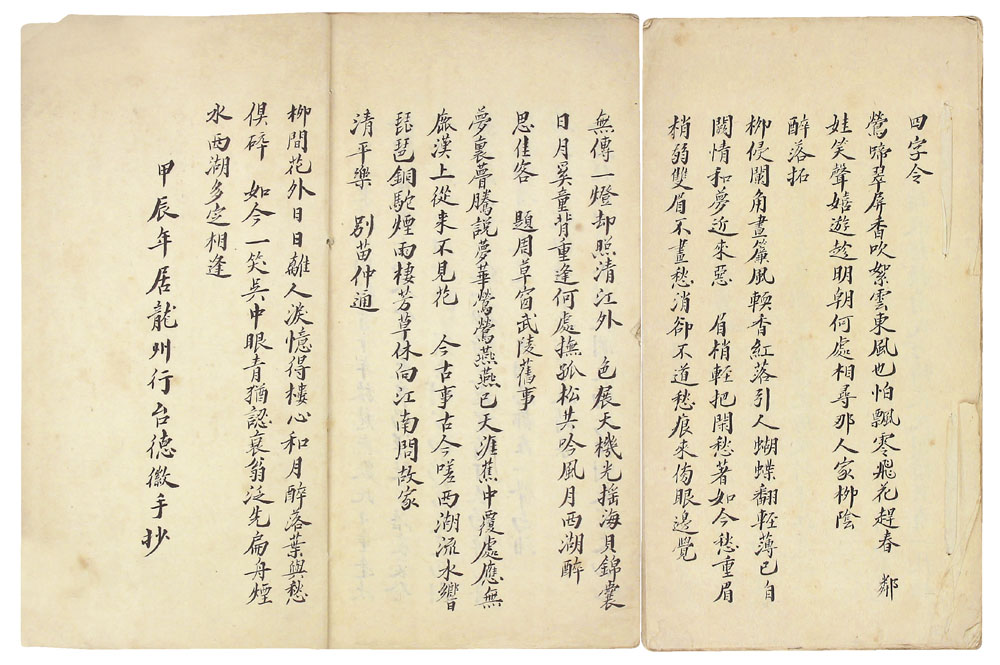 四字令
鶯啼翠屏香吹絮雲東風也怕飄零飛花趕春　鄰
娃笑聲嬉遊趁明朝何處相尋那人家柳陰
醉落拓
柳侵闌角畫簾風輭香紅落引人蝴蝶翻輕薄已自
關情和夢近來惡　眉梢輕把閒愁著如今愁重眉
梢弱雙眉不畫愁消卻不道愁痕來傷眼邊覺
無傳一燈却照清江外　色展天機光搖海貝錦囊
日月奚童背重逢何處撫孤松共吟風月西湖醉
思佳客　題周草窗武陵舊事
夢裏瞢騰說夢華鶯鶯燕燕已天涯蕉中覆處應無
鹿漢上從來不見花　今古事古今嗟西湖流水響
琵琶銅駝煙雨棲芳草休向江南問故家
清平樂　別苗仲通
柳間花外日日離人淚憶得樓心和月醉落葉與愁
俱碎　如今一笑吳中眼青猶認衰翁泛先扁舟煙
水西湖多定相逢
甲辰年居龍州行台德徽手抄